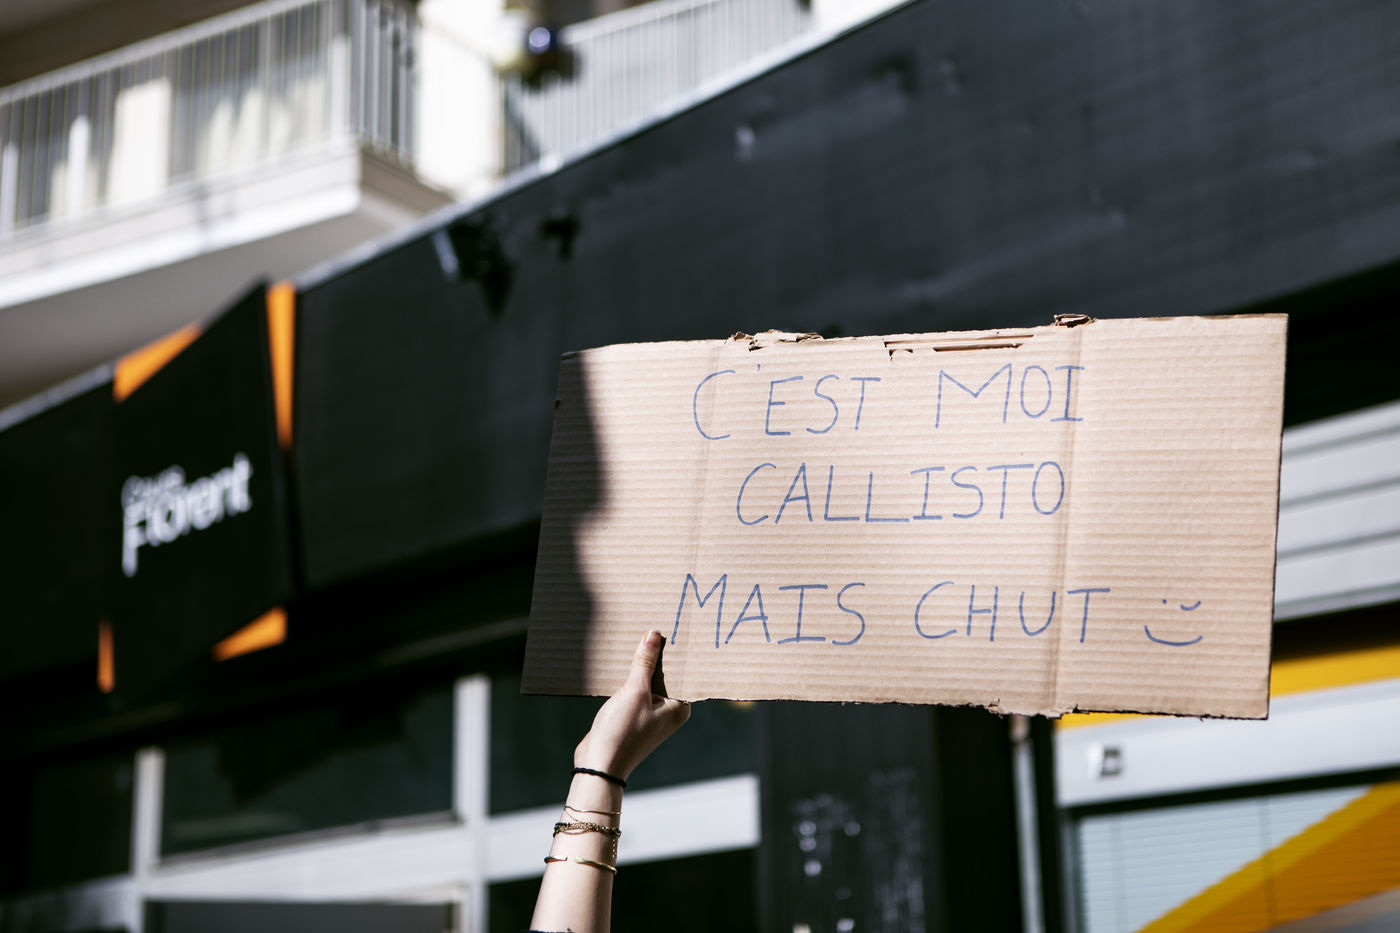 Cours
Florent
C'EST MOI
CALLISTO
MAIS CHUT